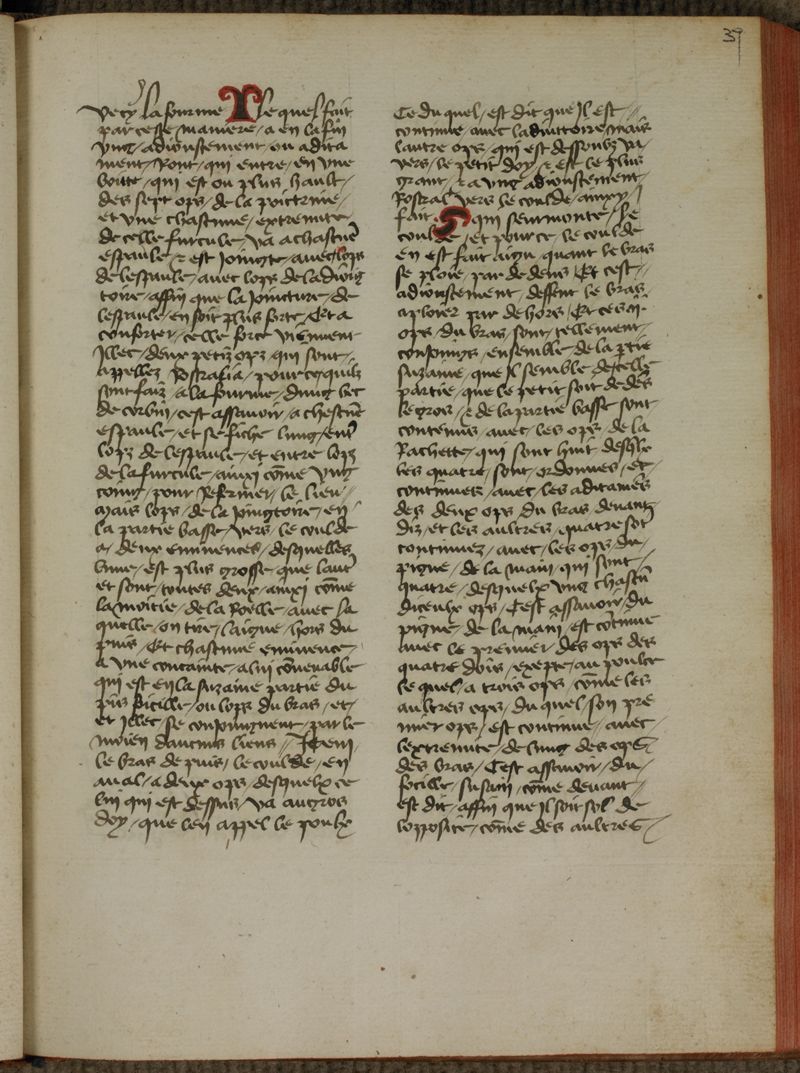 39
Vecy la fourme T le quel fait
par ceste maniere / a en la fin
ung / adioustement / ou adita
ment / Ront / qui entre / en une
boitte / qui est ou plus hault /
des sept ops / de la poictrine /
et une chascune / extremite
de celle furcule / va a chascun̄
espaule / ⁊ est Joingte / avec lops
de lespaule / avec lops de ladiung
toire / affin que la Joincture / de
lespaule / en soit plus forte / Et a
conforter / celle force viennent
Illec / deux petiz ops qui sont /
appellez Rostralia / pource quilz
sont faiz / a la fourme / dung bec
de corbin / cest assavoir / a chescun̄
espaule / et se fiche lung / entr̄
lops de lespaule / et entre lops
de la furcule / ainxi cōme ung
coing / pour Refermer / le lieu /
Mais lops / de la Joingtoire / en
la partie basse / vers / le coulde
a / deux eminences / desquelles
lune / est plus grosse / que laut̄r
et sont / toutes deux / ainxi cōme
la moitie / de la Roelle / avec la
quelle / on tire / laigue / hors du
puis / Et chascune eminence
a une concainte / a lui cōvenable
qui est en la suzaine partie du
focille / ou lops du bras / et /
et Illec / se conjoingnent / par le
moien daucuns liens / Item
le bras de puis / le coulde / en
aval / a deux ops / desquelx ce
lui qui est dessus / va au gros
doy / que len appel le poulx
Ce du quel / est dit que Il est /
continue / avec ladiuttoire / mais
lautre ops / qui est dessoubz va
vers / le petit doy / ⁊ est le plus
grant / ⁊ a ung adioustement /
Rostral / vers le coulde / ainxy
fait / S qui seurmonte / le
coulde / et pour ce / le coulde
en est fait aigu / quant le bras
se ploie / par dedens / Et cest /
adioustement / deffent le bras
a ploier par dehors / Et ces .ii.
ops / du bras / sont / tellement /
conjoings / ensemble / de la p̄tie
suzaine / que Il semble / de celle
partie / que le petit soit dedēs
le gros / ⁊ de la partie basse sont
contenus / avec / les ops / de la
Rachette / qui sont huit desq̄lz
les quatre / sont / ordonnes / et /
continuez / avec / les aditamēs
des deux ops / du bras devant
diz / et les aultres / quatre sōt
continuez / avec / les ops / du /
pigne / de la main / qui sont /
quatre / desquelx ung chascū
diceulx ops / Cest assavoir / du
pigne / de la main / est cōtinue
avec le premier / des ops des
quatre dois / excepte / au poulce
le quel / a trois ops / cōme les
aultres ops / du quel / son pre
mier ops / est continue / avec /
lextremite / de lung des ops
des bras / Cest assavoir / du /
focille / susain / cōme devant /
est dit / affin que Il soit sol de
lopposite / cōme des aultres